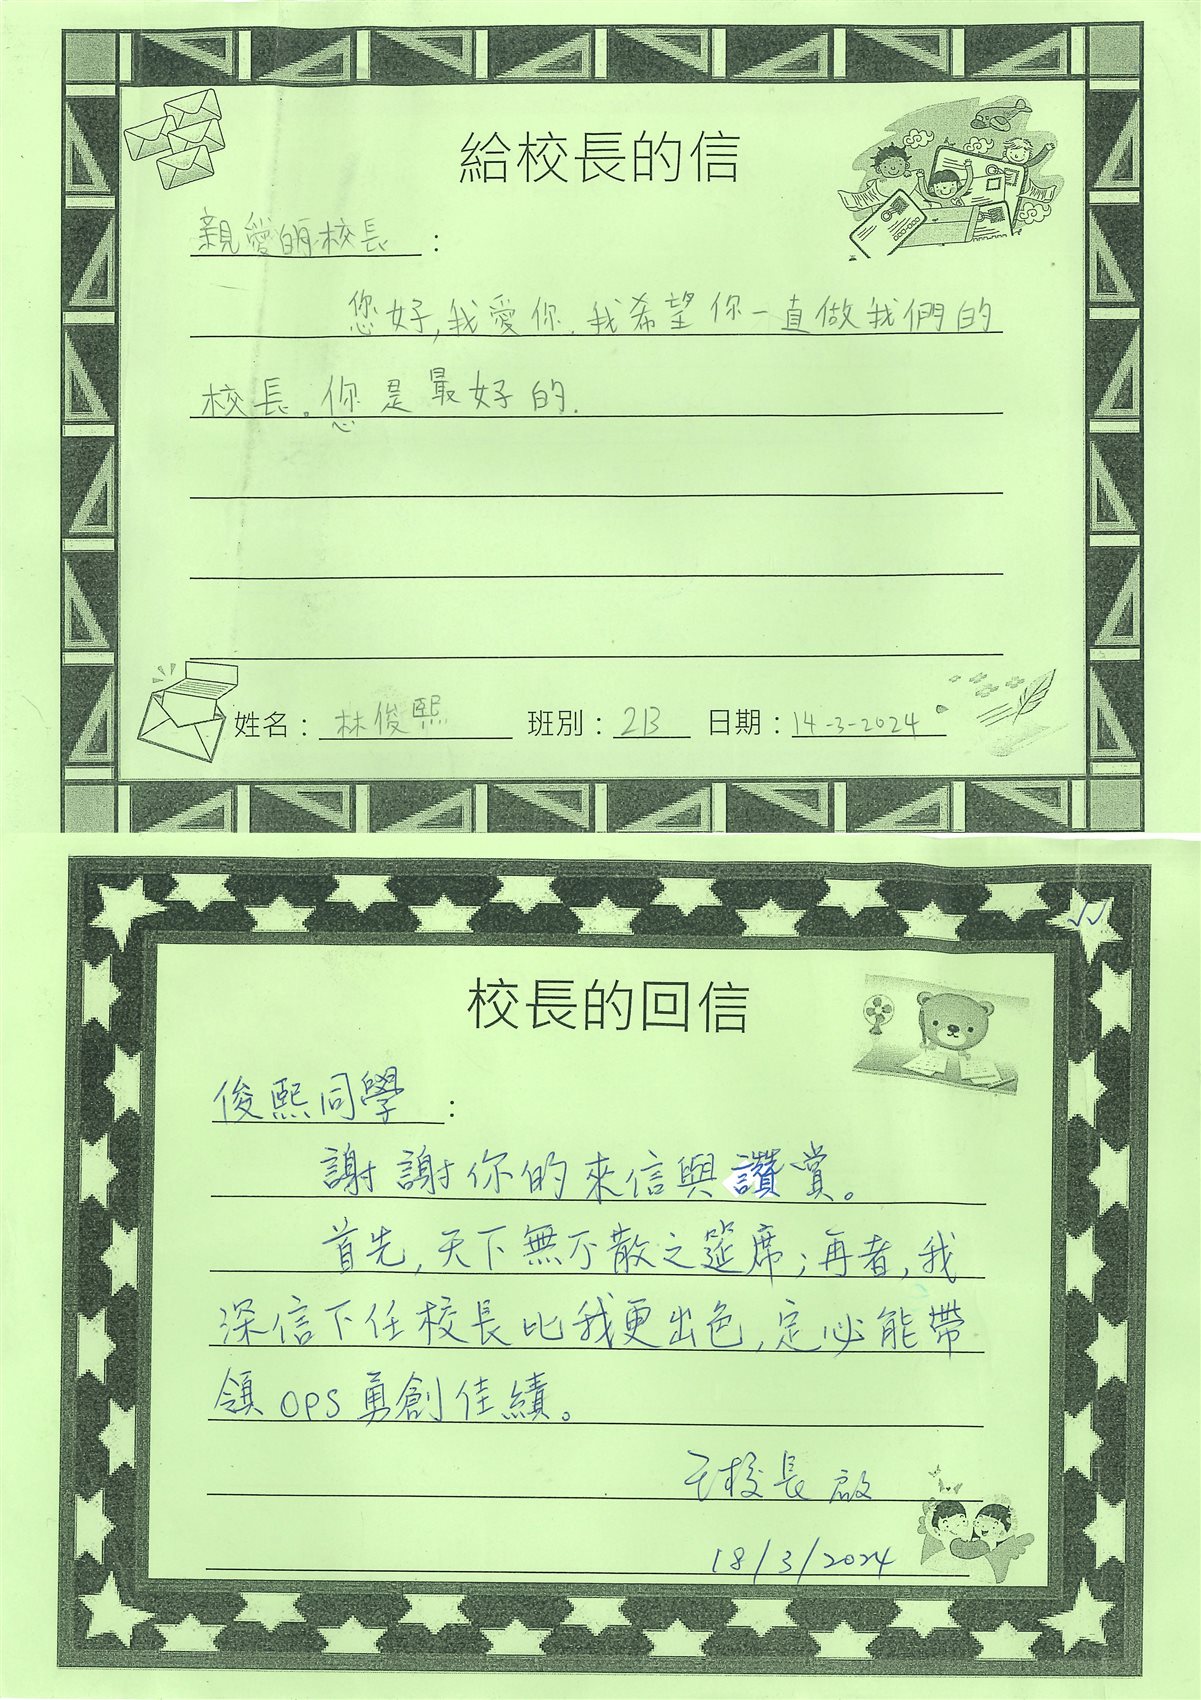 給校長的信
親愛的校長：
您好,我愛你.我希望你一直做我們的
校長。您是最好的.
姓名：林俊熙 班別：2B 日期：14-3-2024
校長的回信
俊熙同學：
謝謝你的來信與讚賞。
首先,天下無不散之筵席;再者,我
深信下任校長比我更出色,定必能帶
領OPS勇創佳績。
校長啟
18/3/2024